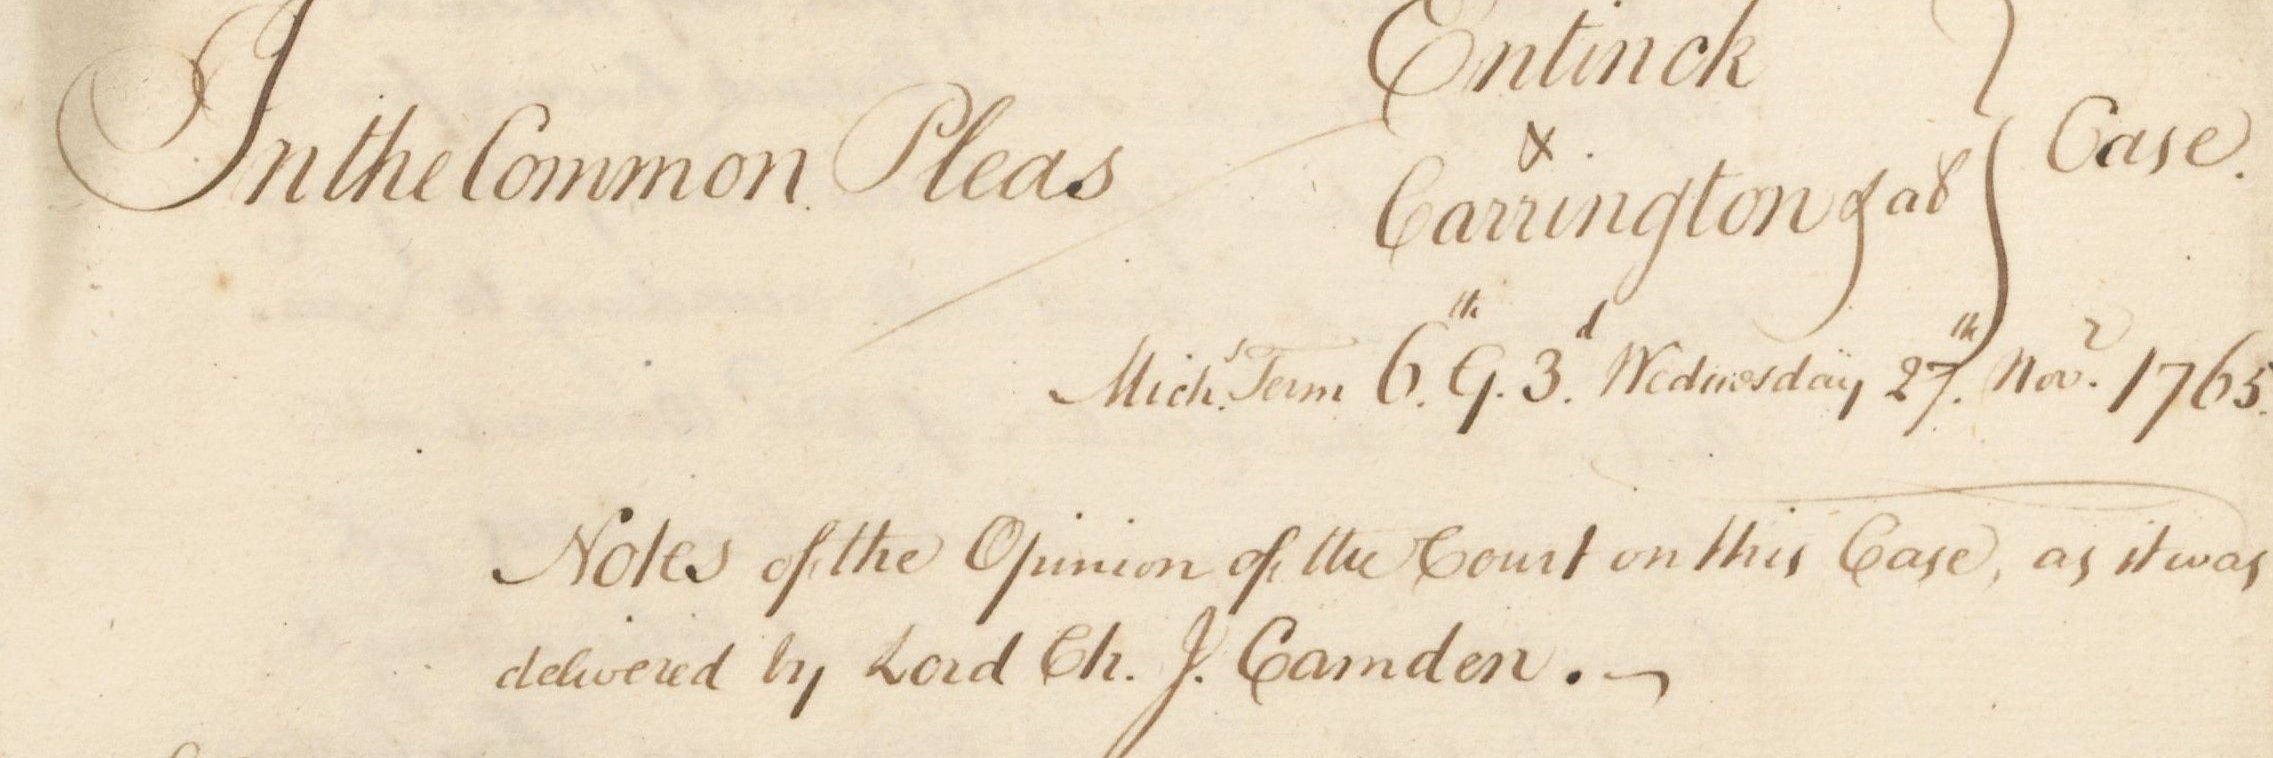 Entinck
&
Carrington & als
In the Common Pleas
Case.
Mich.s Term 6.th G. 3.d Wednesday 27.th Nov.r 1765.
Notes of the Opinion of the Court on this Case, as it was
delivered by Lord Ch. J. Camden.